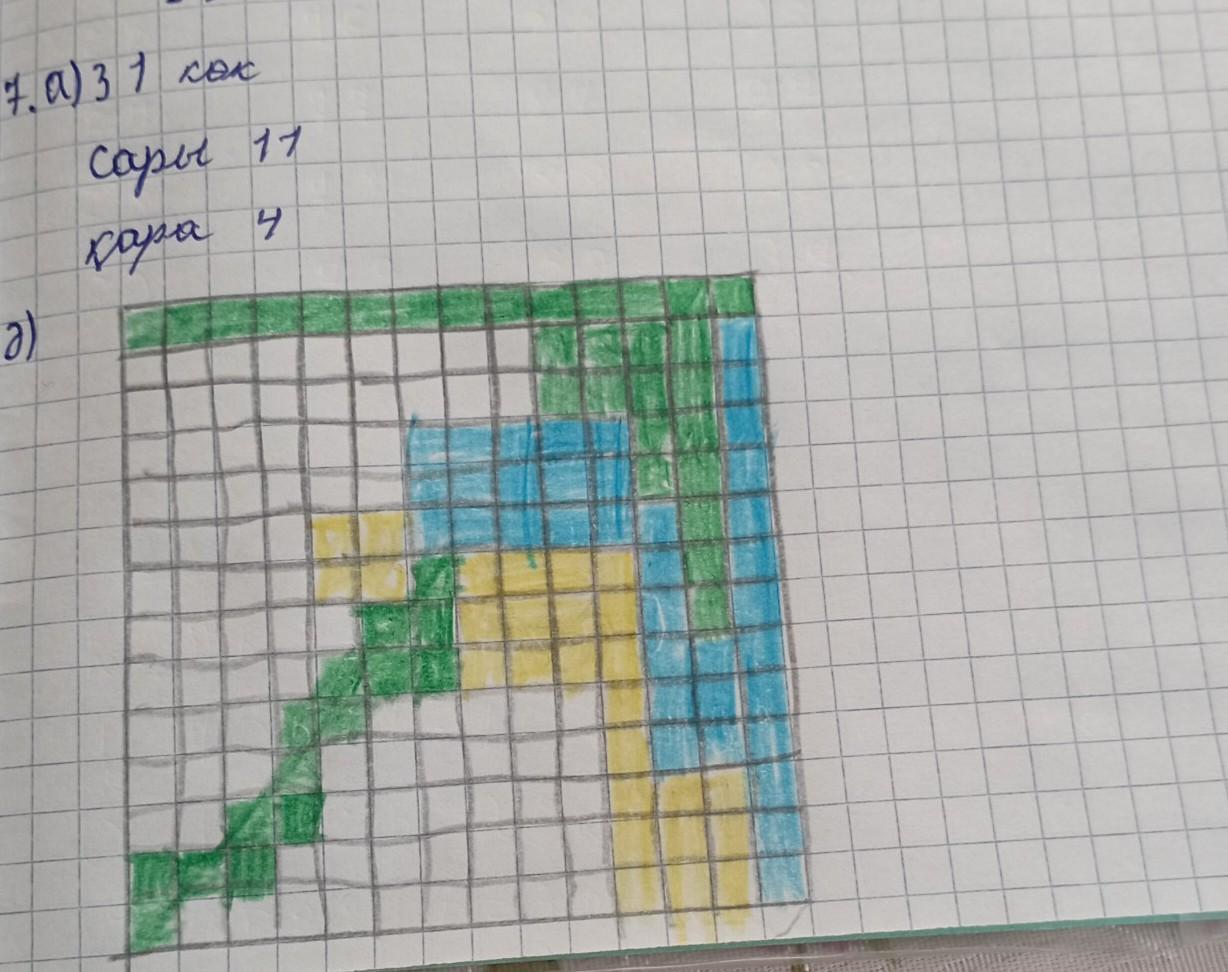 7. а) 31 көк
сары 11
қара 4
д)